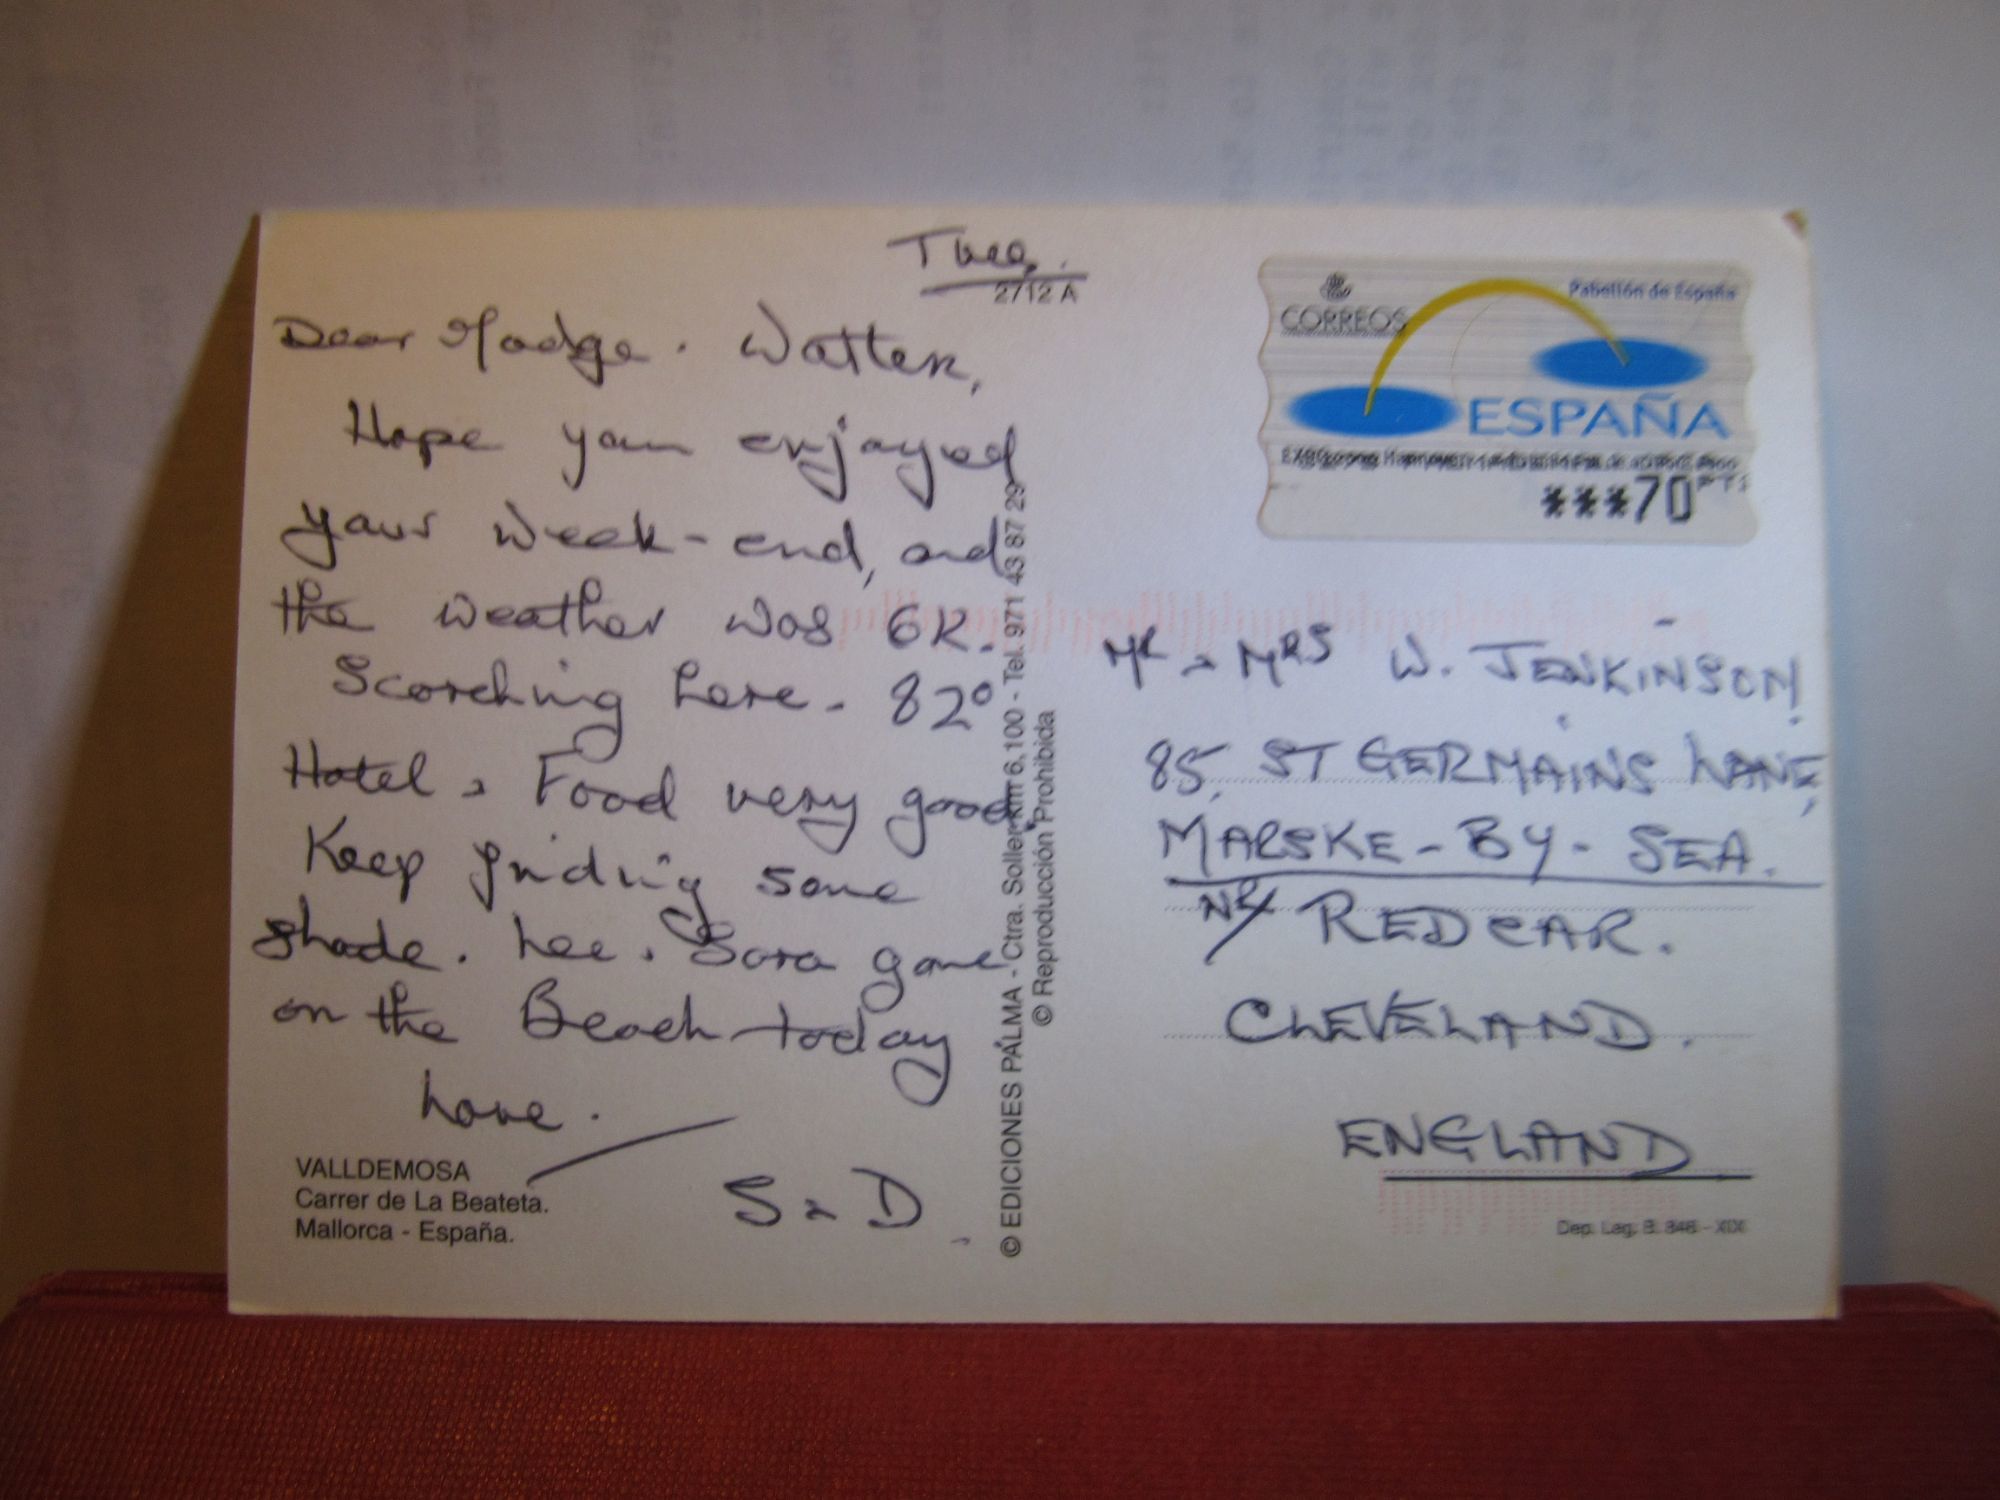 Tues.
2712 A
Dear Madge . Walter,
Hope you enjoyed
your week-end, and
the weather was OK.
Scorching here - 82°
Hotel & Food very good.
Keep finding some
shade. Lee & Sara gone
on the Beach today
Love.
S & D
VALLDEMOSA
Carrer de La Beateta.
Mallorca - España.
© EDICIONES PALMA - Ctra. Soller km 6,100 - Tel. 971 43 87 29
© Reproducción Prohibida
CORREOS
Pabellón de España
ESPAÑA
***70 PTS
MR & MRS W. JENKINSON
85, ST GERMAINS LANE,
MARSKE-BY-SEA.
NR/ REDCAR.
CLEVELAND.
ENGLAND
Dep. Leg. B. 846 - XIX